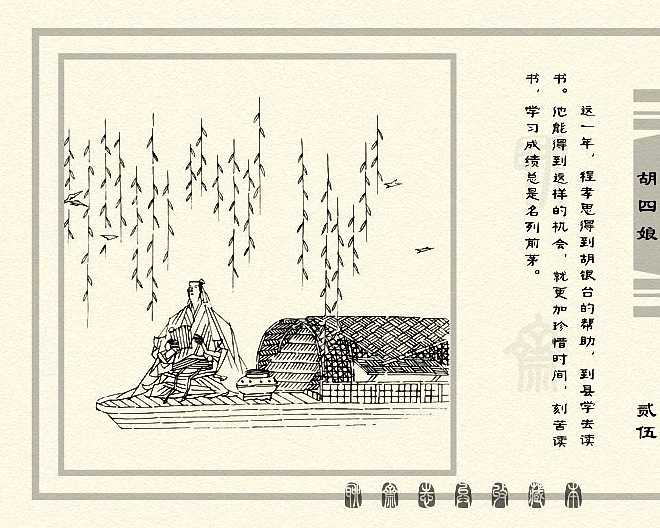 胡四娘
贰伍
这一年，程孝思得到胡银台的帮助，到县学去读
书。他能得到这样的机会，就更加珍惜时间，刻苦读
书，学习成绩总是名列前茅。
聊斋志异收藏本